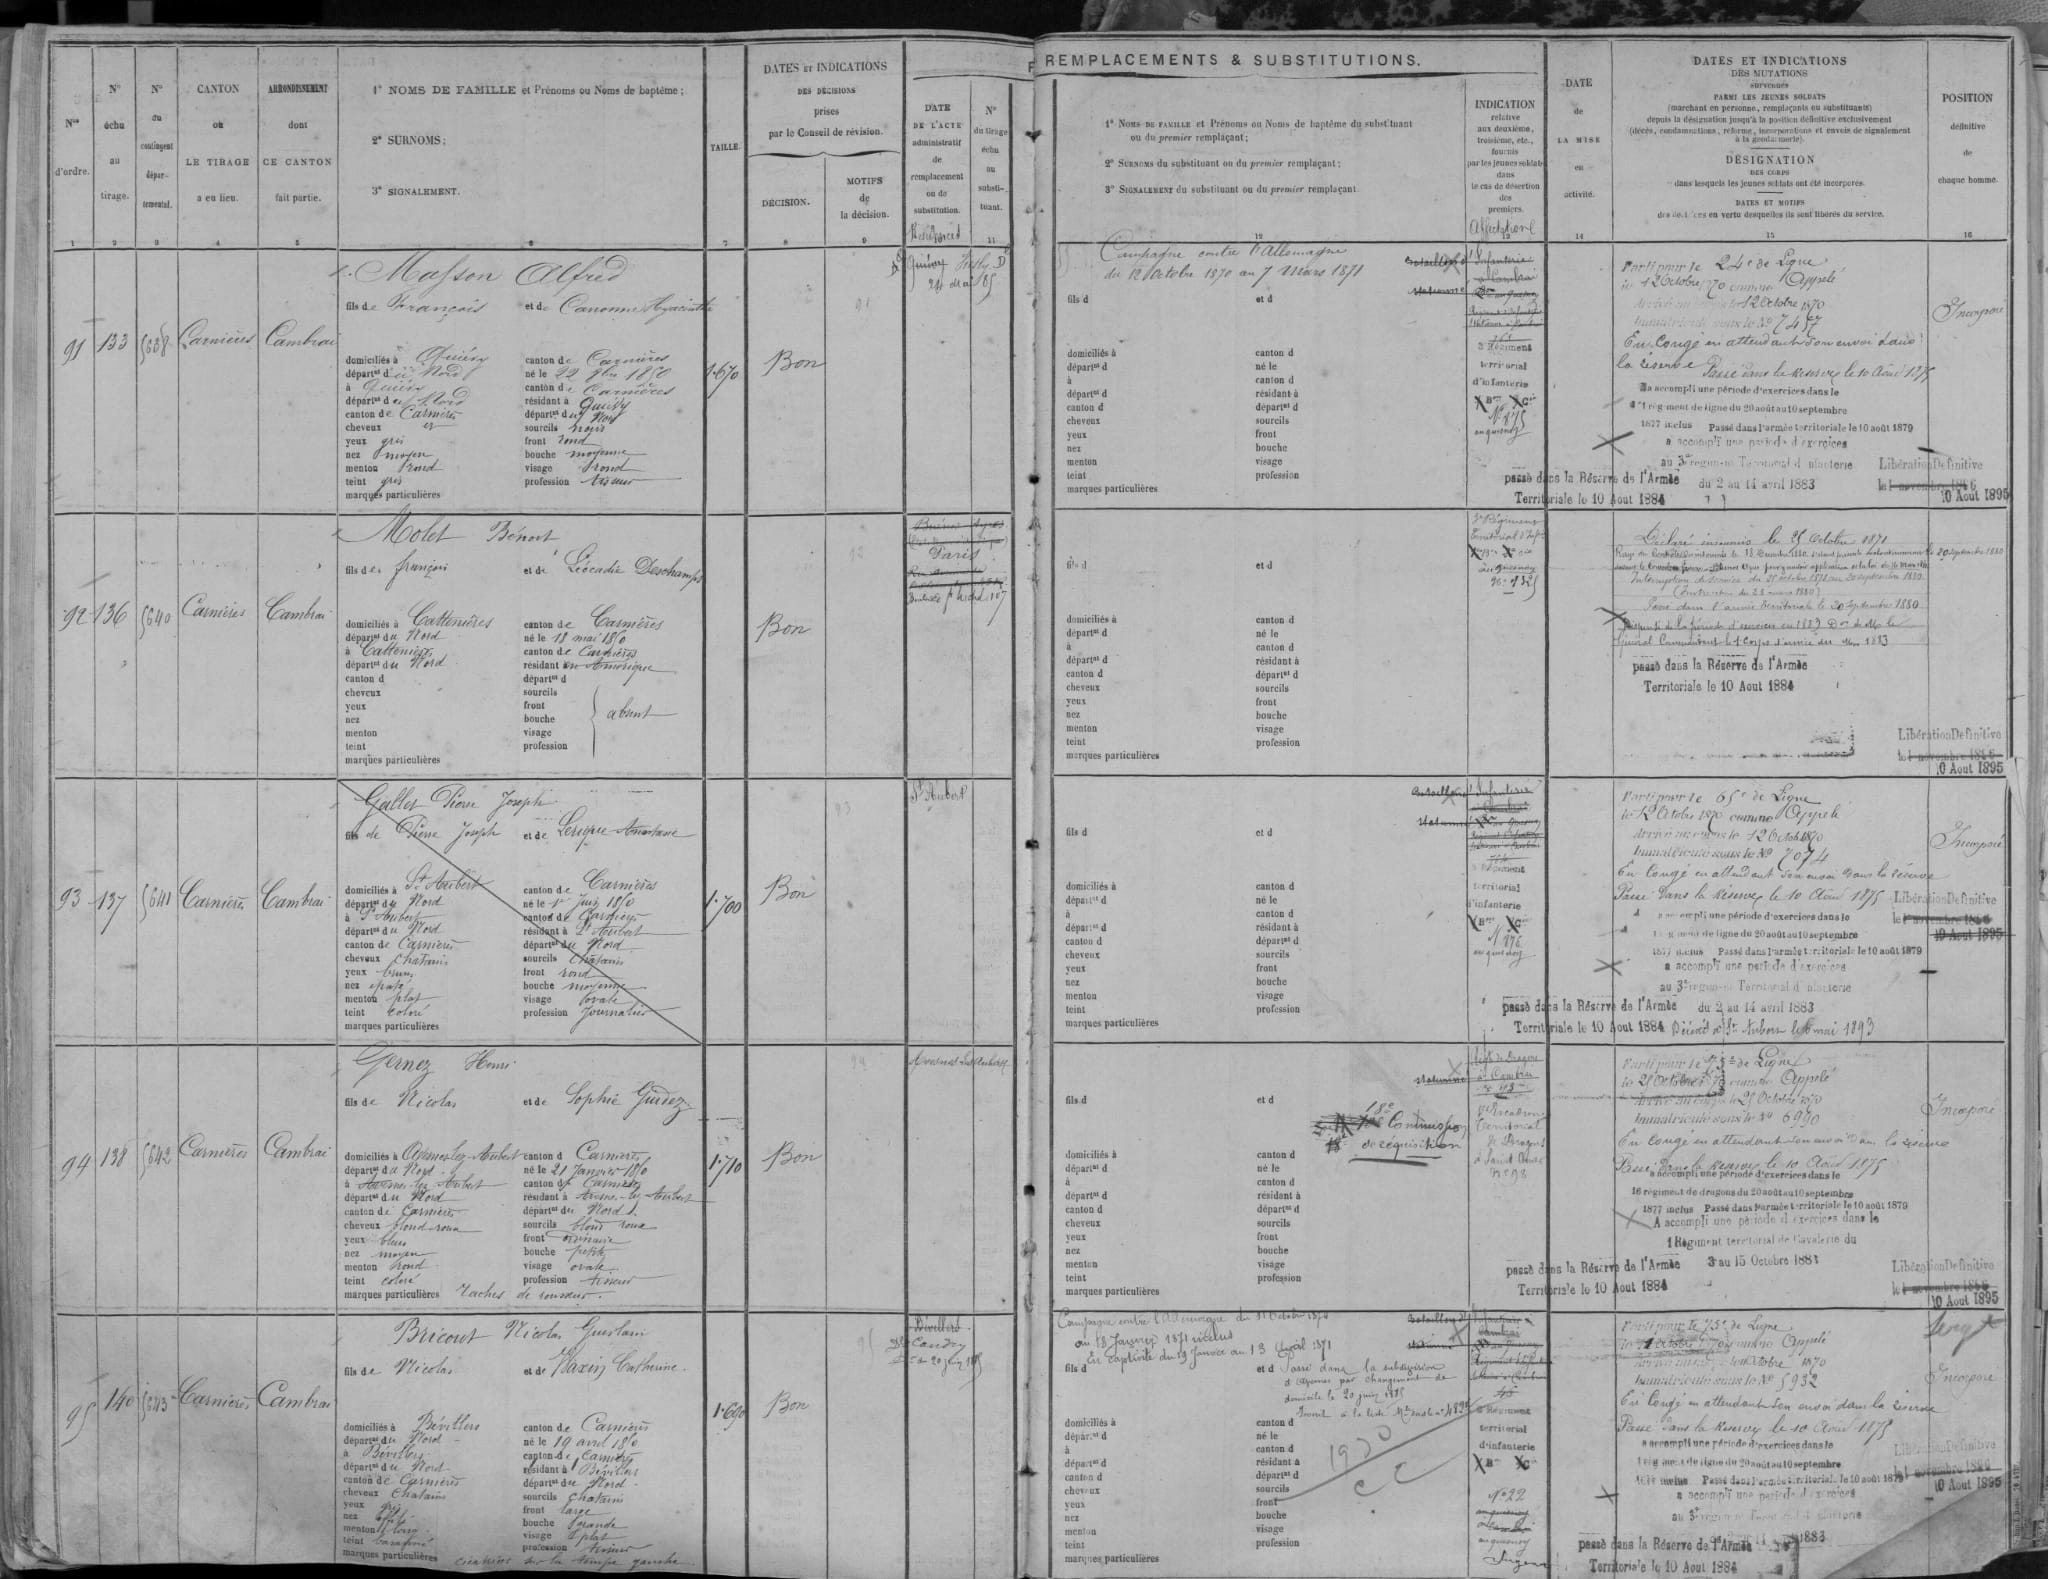 REMPLACEMENTS & SUBSTITUTIONS.
Nos d'ordre.
N° échu au tirage.
N° du contingent départemental.
CANTON où LE TIRAGE a eu lieu.
ARRONDISSEMENT dont CE CANTON fait partie.
1° NOMS DE FAMILLE et Prénoms ou Noms de baptême;
2° SURNOMS;
3° SIGNALEMENT.
TAILLE.
DATES ET INDICATIONS
DES DÉCISIONS
prises
par le Conseil de révision.
DÉCISION.
MOTIFS de la décision.
DATE DE L'ACTE administratif de remplacement ou de substitution.
N° du tirage échu au substituant.
1° NOMS DE FAMILLE et Prénoms ou Noms de baptême du substituant
ou du premier remplaçant;
2° SURNOMS du substituant ou du premier remplaçant;
3° SIGNALEMENT du substituant ou du premier remplaçant.
INDICATION relative aux deuxième, troisième, etc., fournis par les jeunes soldats dans le cas de désertion des premiers.
DATE de LA MISE en activité.
DATES ET INDICATIONS
DES MUTATIONS
SURVENUES
PARMI LES JEUNES SOLDATS
(marchant en personne, remplaçants ou substituants)
depuis la désignation jusqu'à la position définitive exclusivement
(décès, condamnations, réforme, incorporations et envois de signalement
à la gendarmerie).
DÉSIGNATION
DES CORPS
dans lesquels les jeunes soldats ont été incorporés.
DATES ET MOTIFS
des décisions en vertu desquelles ils sont libérés du service.
POSITION définitive de chaque homme.
1 2 3 4 5 6 7 8 9 11 12 13 14 15 16
91 133 5638 Carnières Cambrai
Masson Alfred
fils de François et de Canonne Hyacinthe
domiciliés à Quiévy canton de Carnières
départt du Nord né le 22 9bre 1850
à Quiévy canton de Carnières
départt du Nord résidant à Quiévy
canton de Carnières départt du Nord
cheveux sourcils noirs
yeux gris front rond
nez moyen bouche moyenne
menton rond visage rond
teint gris profession tisseur
marques particulières
1.670 Bon
Campagne contre l'Allemagne
du 12 Octobre 1870 au 7 Mars 1871
fils d et d
domiciliés à canton d
départt d né le
à canton d
départt d résidant à
canton d départt d
cheveux sourcils
yeux front
nez bouche
menton visage
teint profession
marques particulières
3 Régiment
territorial
d'infanterie
N° 875
au quesnoy
Parti pour le 24e de Ligne
le 12 Octobre 1870 comme Appelé
arrivé au corps le 12 Octobre 1870
Immatriculé sous le N° 7457
En Congé en attendant son envoi dans
la réserve Passé dans la Réserve le 10 Août 1875
a accompli une période d'exercices dans le
1 régiment de ligne du 20 août au 10 septembre
1877 inclus Passé dans l'armée territoriale le 10 août 1879
a accompli une période d'exercices
au 3e régiment Territorial d'infanterie
du 2 au 14 avril 1883
passé dans la Réserve de l'Armée
Territoriale le 10 Aout 1884
Incorporé
Libération Definitive
le 1 novembre 1886
10 Aout 1895
92 136 5640 Carnières Cambrai
Molet Benoit
fils de françois et de Léocadie Deschamps
domiciliés à Cattenières canton de Carnières
départt du Nord né le 18 mai 1850
à Cattenières canton de Carnières
départt du Nord résidant en Amérique
canton d départt d
cheveux sourcils
yeux front
nez bouche
menton visage
teint profession
absent
marques particulières
Bon
Buenos Ayres
Paris
fils d et d
domiciliés à canton d
départt d né le
à canton d
départt d résidant à
canton d départt d
cheveux sourcils
yeux front
nez bouche
menton visage
teint profession
marques particulières
3e Régiment
Territorial d'Infie
au quesnoy
Déclaré insoumis le 25 Octobre 1871
Interruption de service du 25 octobre 1871 au 20 septembre 1880
Passé dans l'armée territoriale le 20 septembre 1880
Général Commandant le 1er Corps d'armée du 1883
passé dans la Réserve de l'Armée
Territoriale le 10 Aout 1884
20 septembre 1880
Libération Definitive
le 1 novembre 1886
10 Aout 1895
93 137 5641 Carnières Cambrai
Gallet Pierre Joseph
fils de Pierre Joseph et de Lerique Anastasie
domiciliés à St Aubert canton de Carnières
départt du Nord né le 1er Juin 1850
à St Aubert canton de Carnières
départt du Nord résidant à St Aubert
canton de Carnières départt du Nord
cheveux chatains sourcils chatains
yeux bruns front rond
nez épaté bouche moyenne
menton plat visage ovale
teint coloré profession Journalier
marques particulières
1.700 Bon
St Aubert
fils d et d
domiciliés à canton d
départt d né le
à canton d
départt d résidant à
canton d départt d
cheveux sourcils
yeux front
nez bouche
menton visage
teint profession
marques particulières
3 Régiment
territorial
d'infanterie
N° 876
au quesnoy
Parti pour le 65e de Ligne
le 12 Octobre 1870 comme Appelé
arrivé au corps le 12 Octobre 1870
Immatriculé sous le N° 7074
En Congé en attendant son envoi dans la réserve
Passé dans la Réserve le 10 Août 1875
a accompli une période d'exercices dans le
1 régiment de ligne du 20 août au 10 septembre
1877 inclus Passé dans l'armée territoriale le 10 août 1879
a accompli une période d'exercices
au 3e régiment Territorial d'infanterie
du 2 au 14 avril 1883
passé dans la Réserve de l'Armée
Territoriale le 10 Aout 1884 Décédé à St Aubert le 6 mai 1893
Incorporé
Libération Definitive
le 1 novembre 1886
10 Aout 1895
94 138 5642 Carnières Cambrai
Gernez Henri
fils de Nicolas et de Sophie Guidez
domiciliés à Avesnes-lez-Aubert canton d Carnières
départt du Nord né le 21 Janvier 1850
à Avesnes-lez-Aubert canton de Carnières
départt du Nord résidant à Avesnes-lez-Aubert
canton de Carnières départt du Nord
cheveux blond-roux sourcils blond roux
yeux bleus front ordinaire
nez moyen bouche petite
menton rond visage ovale
teint coloré profession tisseur
marques particulières taches de rousseur.
1.710 Bon
Avesnes-lez-Aubert
fils d et d
18e Commission
de réquisition
domiciliés à canton d
départt d né le
à canton d
départt d résidant à
canton d départt d
cheveux sourcils
yeux front
nez bouche
menton visage
teint profession
marques particulières
1er Escadron
Territorial
de Dragons
à Saint Omer
N° 98
Parti pour le 75e de Ligne
le 25 Octobre 1870 comme Appelé
arrivé au corps le 25 Octobre 1870
Immatriculé sous le N° 6990
En Congé en attendant son envoi dans la réserve
Passé dans la Réserve le 10 Août 1875
a accompli une période d'exercices dans le
16 régiment de dragons du 20 août au 10 septembre
1877 inclus Passé dans l'armée territoriale le 10 août 1879
A accompli une période d'exercices dans le
1 Régiment territorial de Cavalerie du
3 au 15 Octobre 1881
passé dans la Réserve de l'Armée
Territoriale le 10 Aout 1884
Incorporé
Libération Definitive
le 1 novembre 1886
10 Aout 1895
95 140 5643 Carnières Cambrai
Bricout Nicolas Guislain
fils de Nicolas et de Waxin Catherine.
domiciliés à Bévillers canton de Carnières
départt du Nord né le 19 avril 1850
à Bévillers canton de Carnières
départt du Nord résidant à Bévillers
canton de Carnières départt du Nord
cheveux chatains sourcils chatains
yeux gris front large
nez effilé bouche grande
menton long visage plat
teint basané profession tisseur
marques particulières cicatrice sur la tempe gauche
1.690 Bon
Bévillers
Caudry
20 juin 1885
Campagne contre l'Allemagne du 11 Octobre 1870
au 18 Janvier 1871 inclus
En captivité du 19 Janvier au 13 Avril 1871
fils d et d
Passé dans la subdivision
d'Avesnes par changement de
domicile le 20 juin 1885
1930
domiciliés à canton d
départt d né le
à canton d
départt d résidant à
canton d départt d
cheveux sourcils
yeux front
nez bouche
menton visage
teint profession
marques particulières
3 Régiment
territorial
d'infanterie
N° 22
au quesnoy
Sergent
Parti pour le 75e de Ligne
le 11 Octobre 1870 comme Appelé
Immatriculé sous le N° 5932
En Congé en attendant son envoi dans la réserve
Passé dans la Réserve le 10 Août 1875
a accompli une période d'exercices dans le
1 régiment de ligne du 20 août au 10 septembre
1877 inclus Passé dans l'armée territoriale le 10 août 1879
a accompli une période d'exercices
au 3e régiment Territorial d'infanterie
1883
passé dans la Réserve de l'Armée
Territoriale le 10 Aout 1884
Sergt
Incorporé
Libération Definitive
le 1 novembre 1886
10 Aout 1895